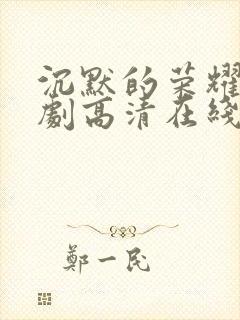 沉默的荣耀
劇高清在綫
鄭一民